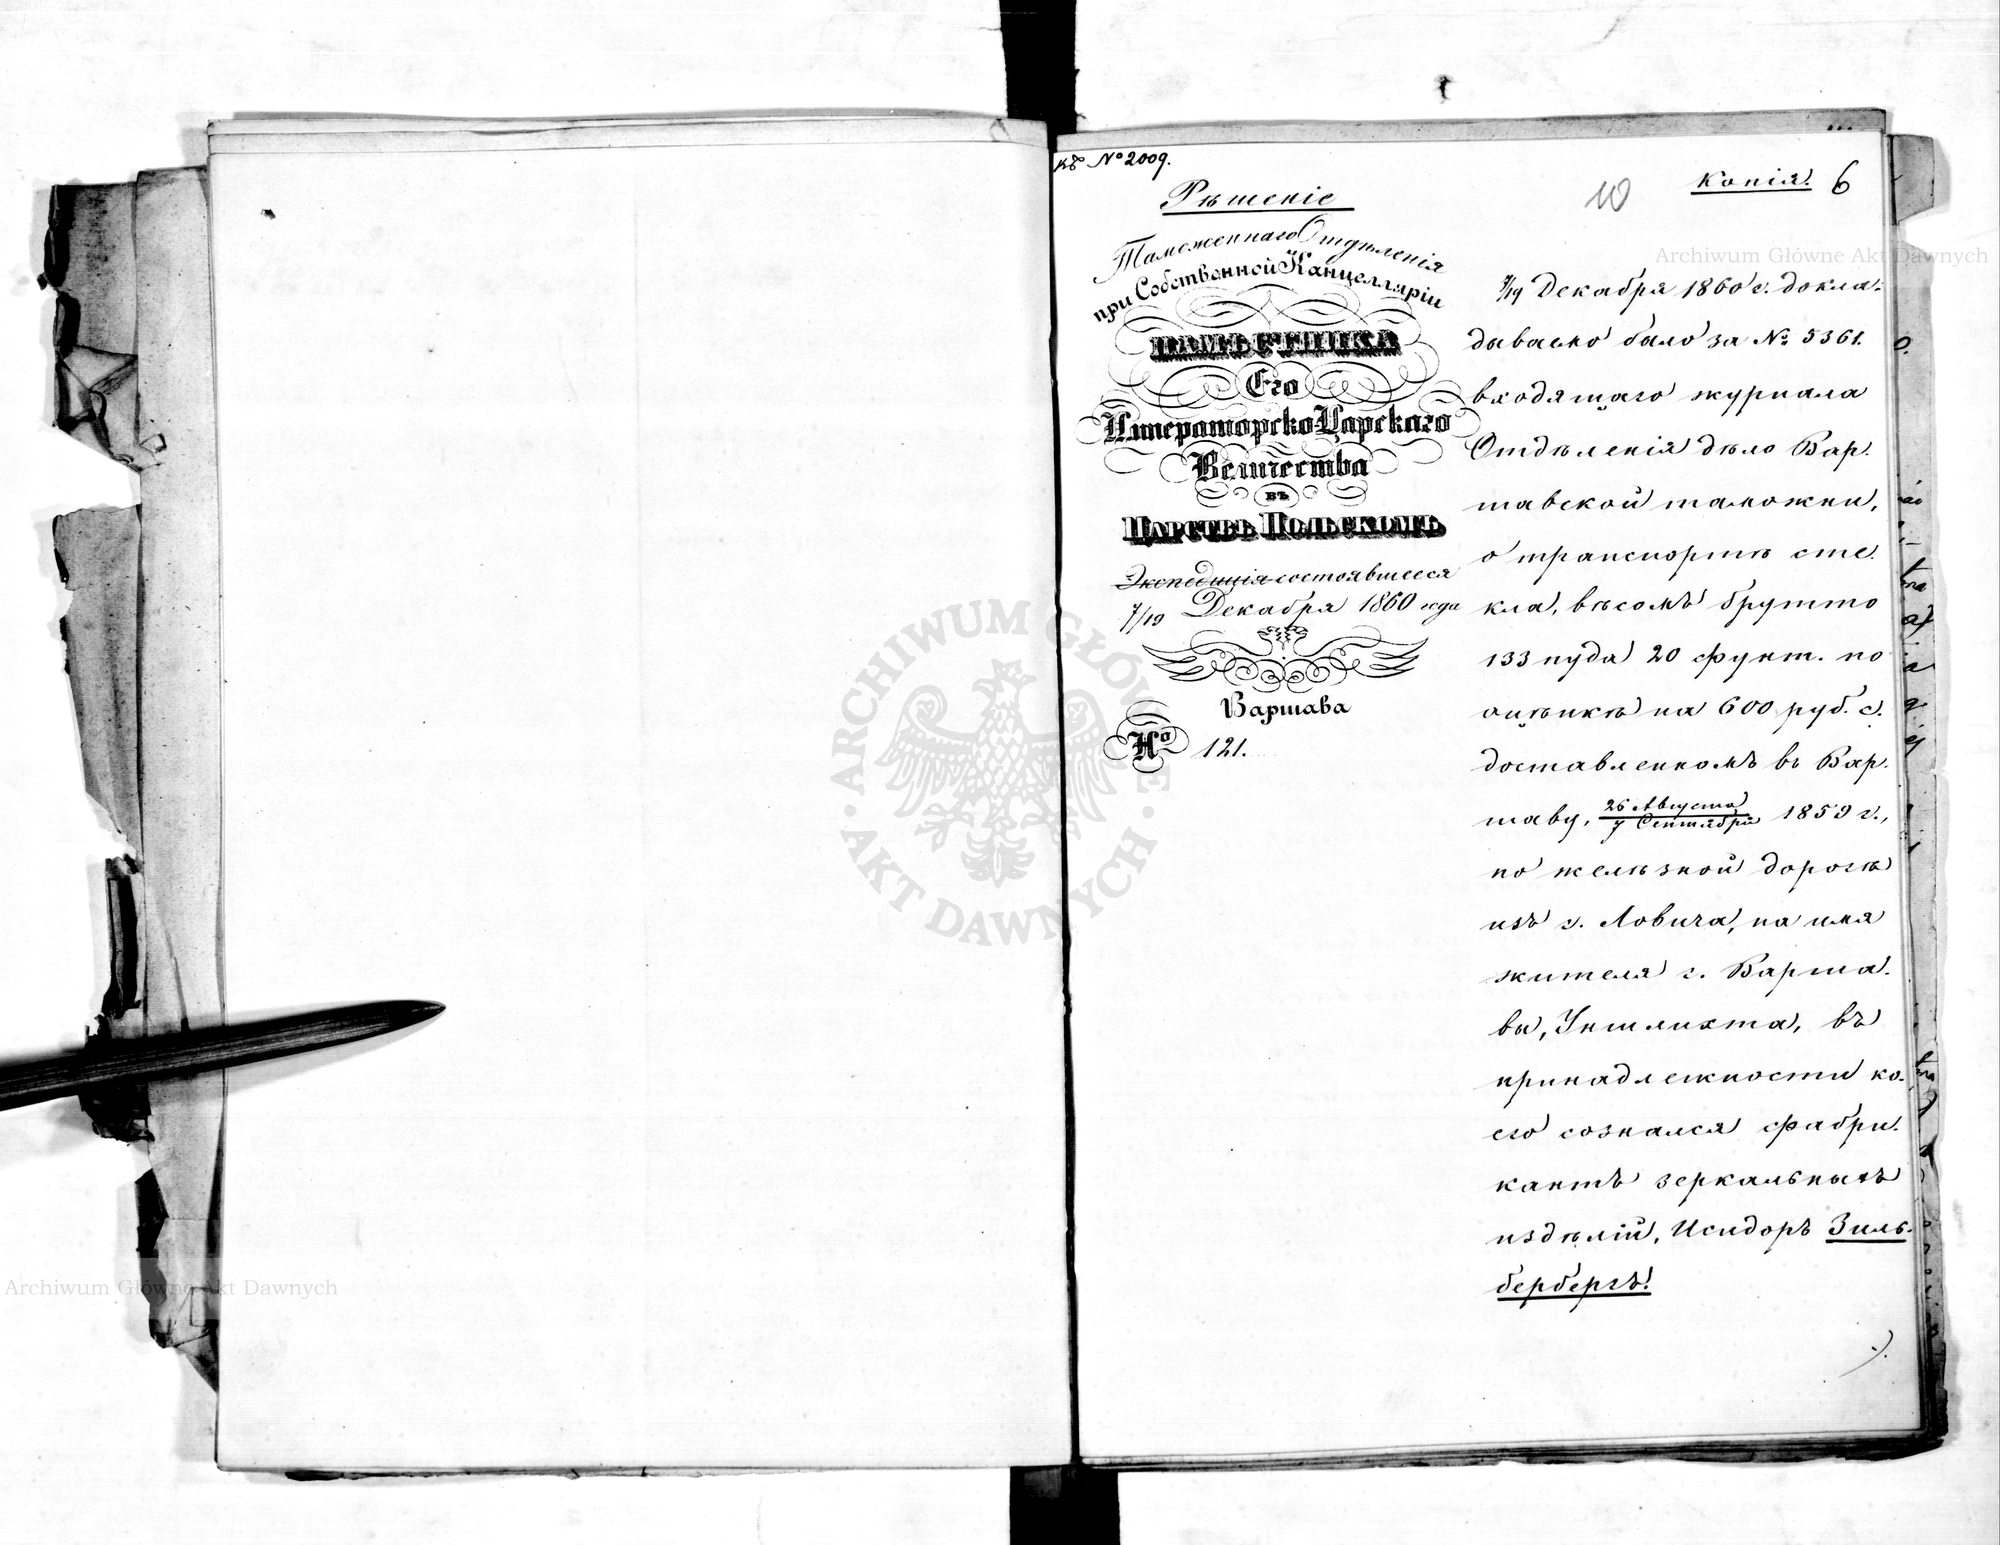 къ № 2009.
Копія. 6
10
Рѣшеніе
Таможеннаго Отдѣленія
при Собственной Канцелляріи
НАМѢСТНИКА
Его
Императорско-Царскаго
Величества
въ
ЦАРСТВѢ ПОЛЬСКОМЪ
Экспедиція состоявшееся
7/19 Декабря 1860 года
Варшава
№ 121.
7/19 Декабря 1860 г. докла-
дывано было за № 5361.
входящаго журнала
Отдѣленія дѣло Вар-
шавской таможни,
о транспортѣ сте-
кла, вѣсомъ брутто
133 пуда 20 фунт. по
оцѣнкѣ на 600 руб. с.
доставленномъ въ Вар-
шаву, 26 Августа/7 Сентября 1859 г.,
по желѣзной дорогѣ
изъ г. Ловича, на имя
жителя г. Варша-
вы, Уншлихта, въ
принадлежности ко-
его сознался фабри-
кантъ зеркальныхъ
издѣлій, Исидоръ Зиль-
бербергъ.
Archiwum Główne Akt Dawnych
Archiwum Główne Akt Dawnych
ARCHIWUM GŁÓWNE AKT DAWNYCH